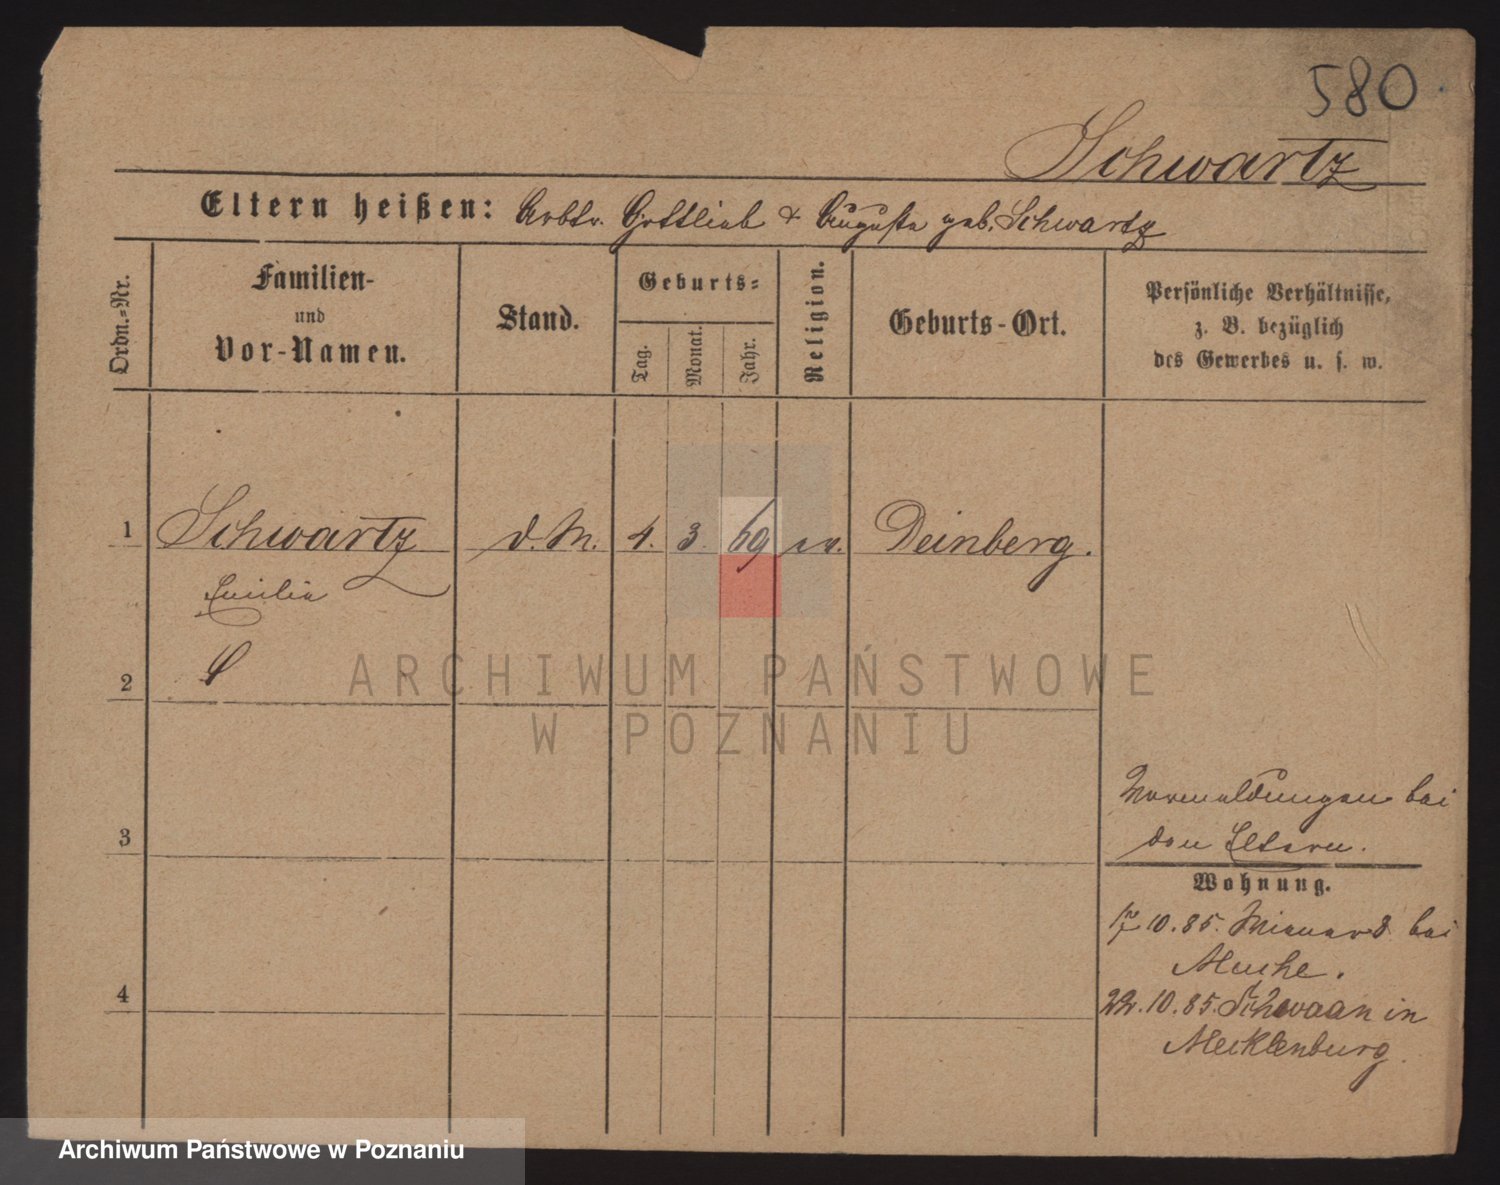 580
Schwartz
Eltern heißen: Arbtr. Gottlieb & Auguste geb. Schwartz
Ordn.-Nr.
Familien-
und
Vor-Namen.
Stand.
Geburts=
Tag.
Monat.
Jahr.
Religion.
Geburts-Ort.
Persönliche Verhältnisse,
z. B. bezüglich
des Gewerbes u. s. w.
1 Schwartz d. M. 4. 3. 69 ev. Deinberg.
Emilie
2
ARCHIWUM PAŃSTWOWE
W POZNANIU
3
Vermeldungen bei
den Eltern.
Wohnung.
17 10.85. bei
4
22.10.85. Schwaan in
Mecklenburg.
Archiwum Państwowe w Poznaniu